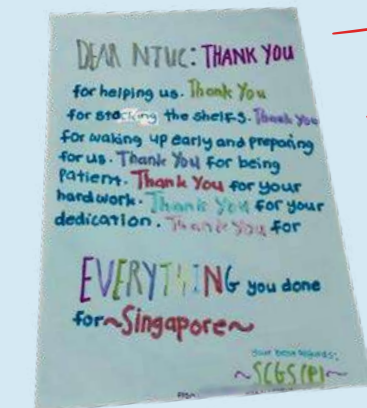 DEAR NTUC: THANK YOU
for helping us. Thank You
for stocking the shelfs. Thank You
for waking up early and preparing
for us. Thank You for being
Patient. Thank You for your
hardwork. Thank You for your
dedication. Thank You for
EVERYTHING you done
for~Singapore~
your best regards:
~SCGS(P)~